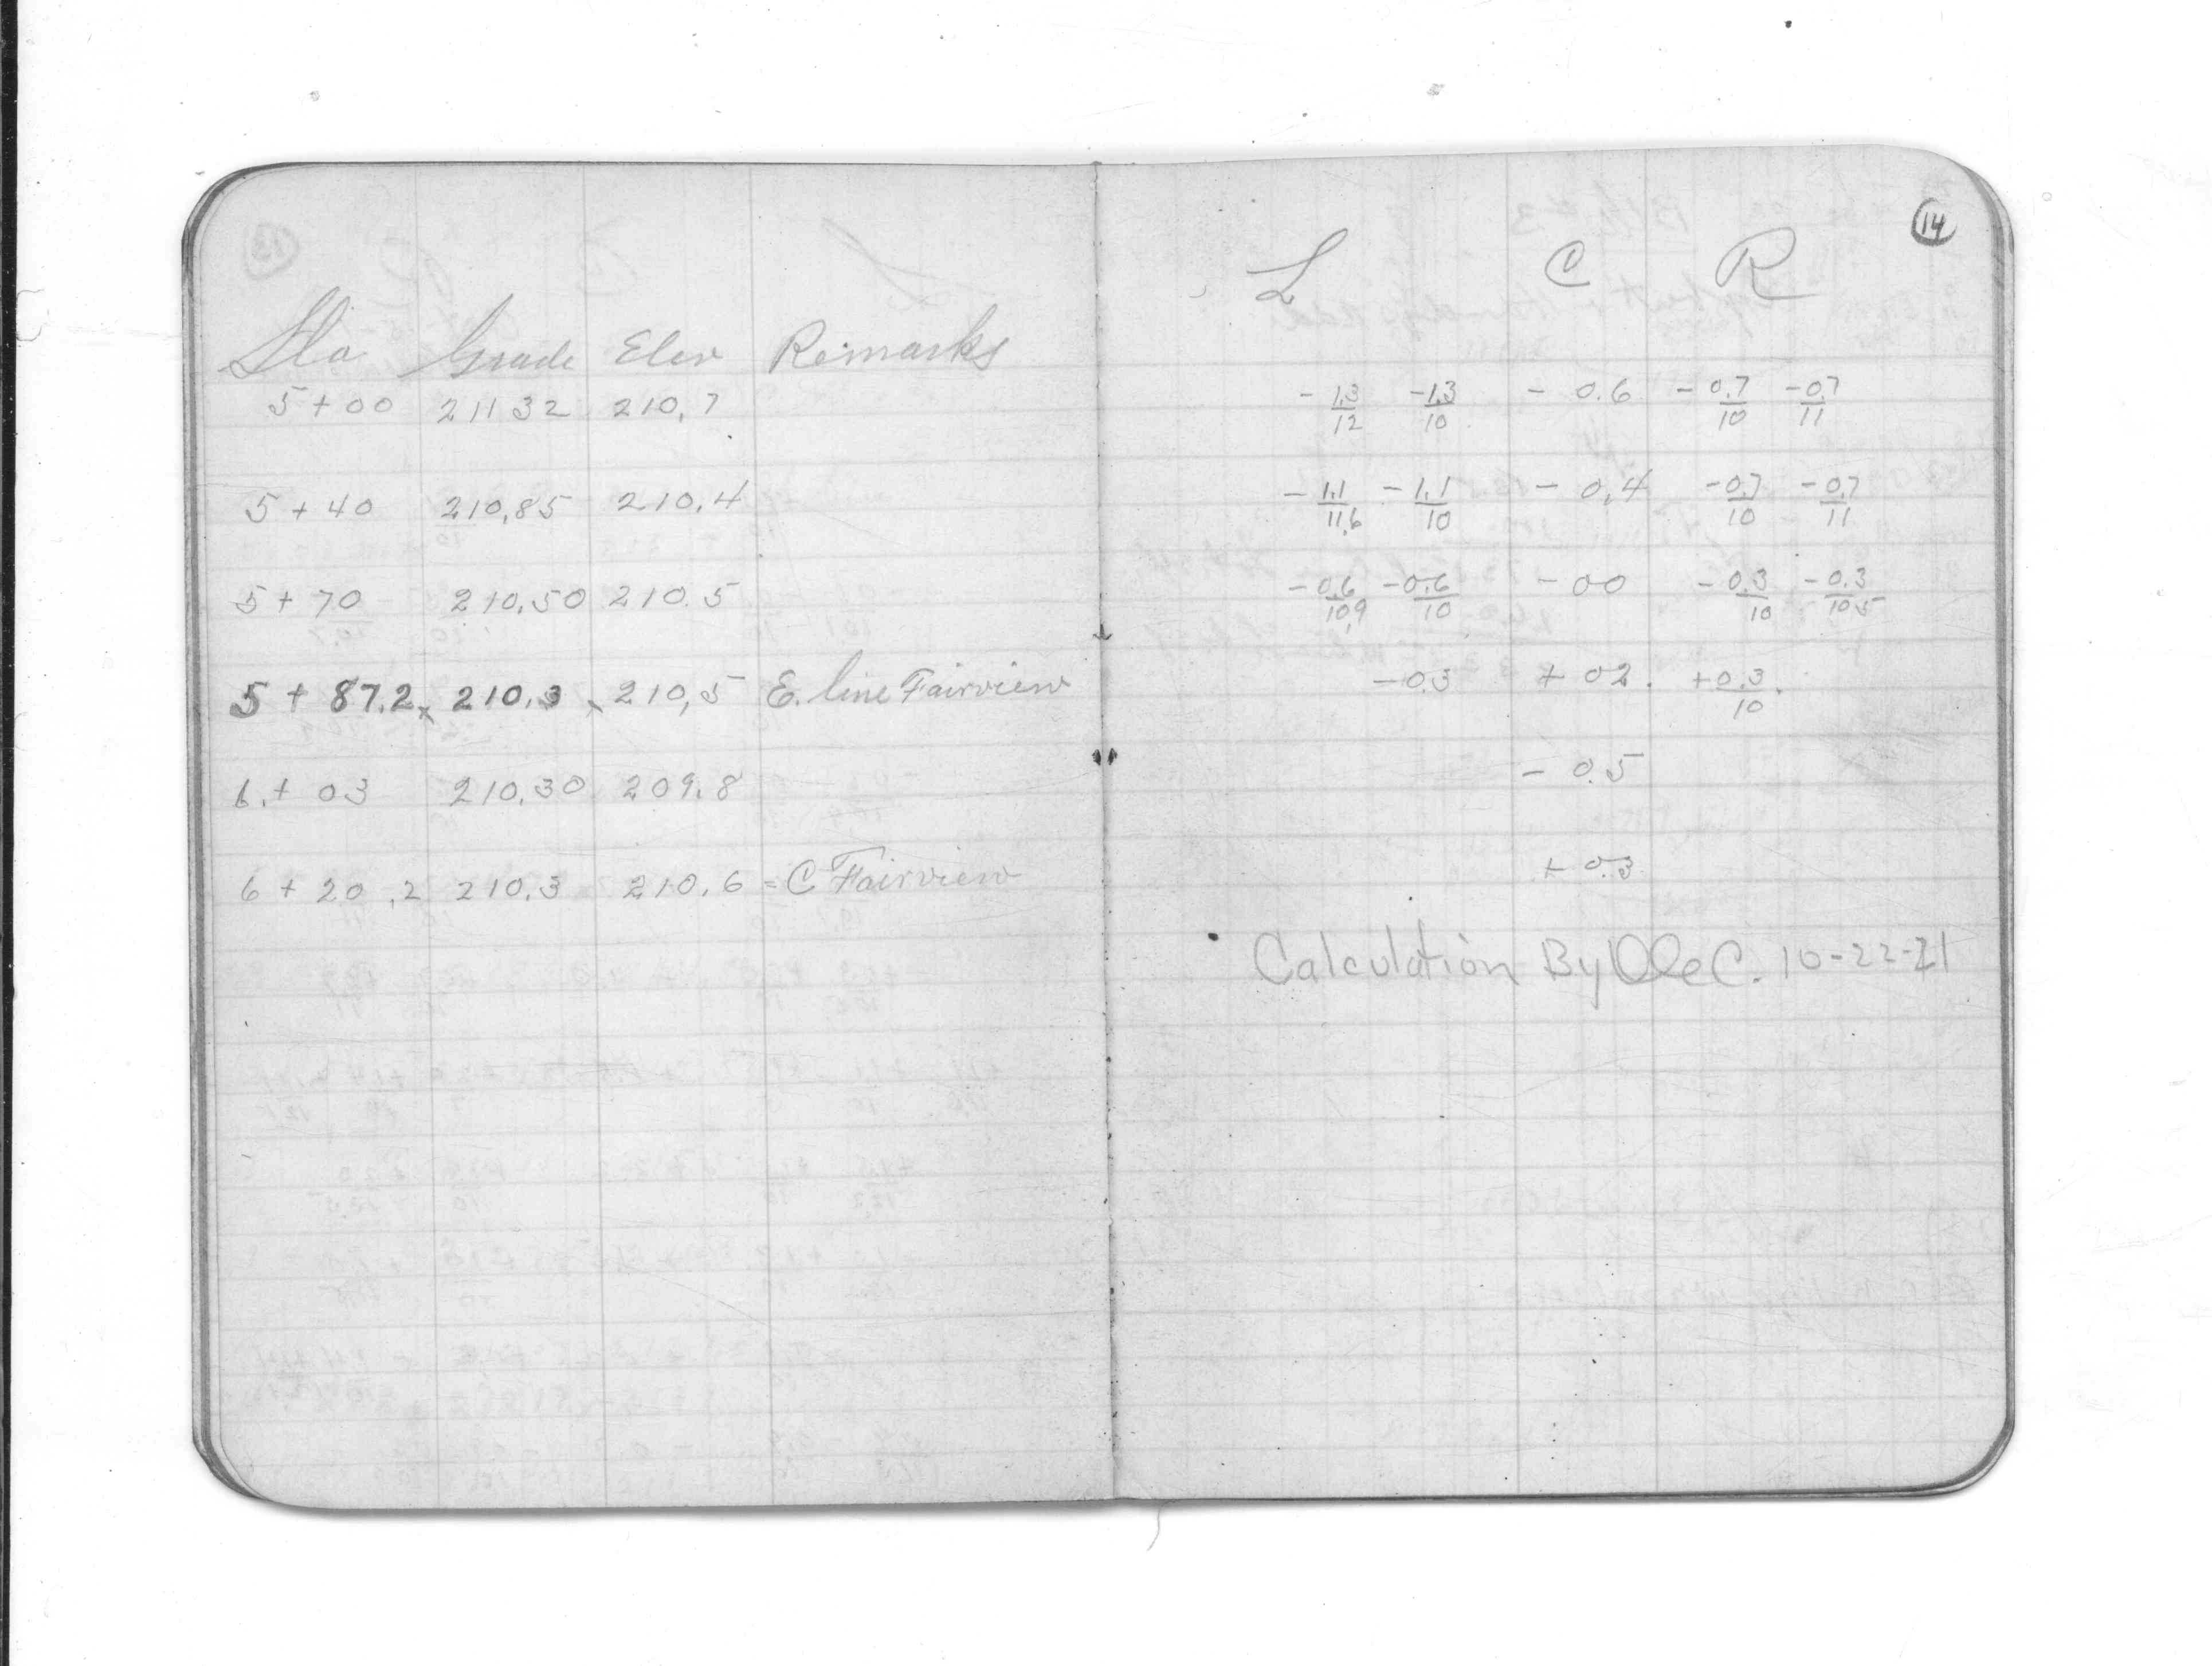 Sta Grade Elev Remarks
5+00 211 32 210,7
5+40 210,85 210,4
5+70 210,50 210.5
5+87.2 x 210.3 x 210,5 E. line Fairview
6.+03 210.30 209.8
6+20.2 210.3 210.6 = C Fairview
14
L C R
-1.3/12 -1.3/10 -0.6 -0.7/10 -0.7/11
-1.1/11.6 -1.1/10 -0,4 -0.7/10 -0.7/11
-0.6/10,9 -0.6/10 -00 -0.3/10 -0.3/10 5
-0.3 +02. +0.3/10
-0.5
+0.3
Calculation By 10-22-21